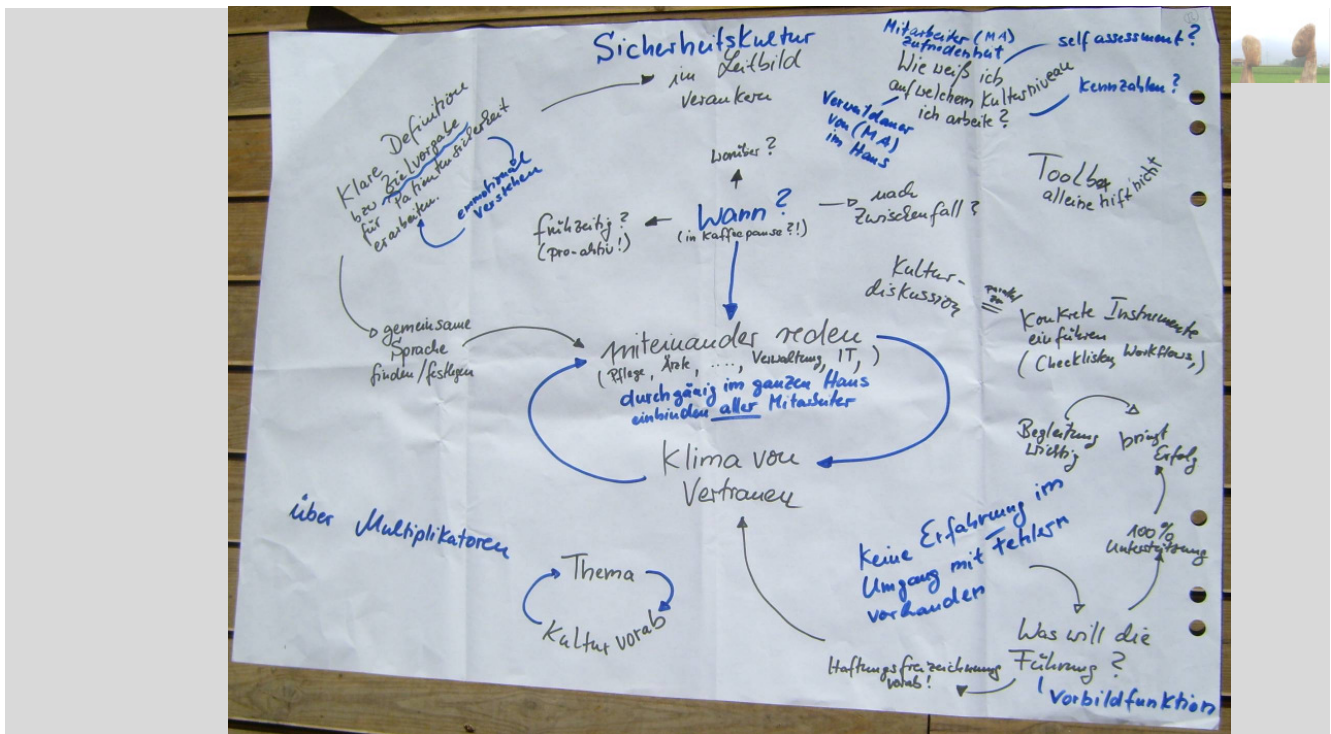 Sicherheitskultur
im Leitbild
verankern
Mitarbeiter (MA)
zufriedenheit
self assessment?
Wie weiß ich
auf welchem Kulturniveau
ich arbeite?
Kennzahlen?
Verweildauer
von (MA)
im Haus
Klare Definition
bzw Zielvorgabe
für Patientensicherheit
erarbeiten.
emmotional
verstehen
worüber?
Wann?
(in Kaffeepause?!)
frühzeitig?
(pro-aktiv!)
nach
Zwischenfall?
Toolbox
alleine hift nicht
Kultur-
diskussion
=
Konkrete Instrumente
einführen
(Checklisten, Workflows,)
gemeinsame
Sprache
finden/festlegen
miteinander reden
(Pflege, Ärzte, ...., Verwaltung, IT, )
durchgänig im ganzen Haus
einbinden aller Mitarbeiter
Klima von
Vertrauen
Begleitung
wichtig
bringt
Erfolg
über Multiplikatoren
Thema
Kultur vorab
Keine Erfahrung im
Umgang mit Fehlern
vorhanden
100%
Unterstützung
Was will die
Führung?
Vorbildfunktion
Haftungsfreizeichnung
vorab!